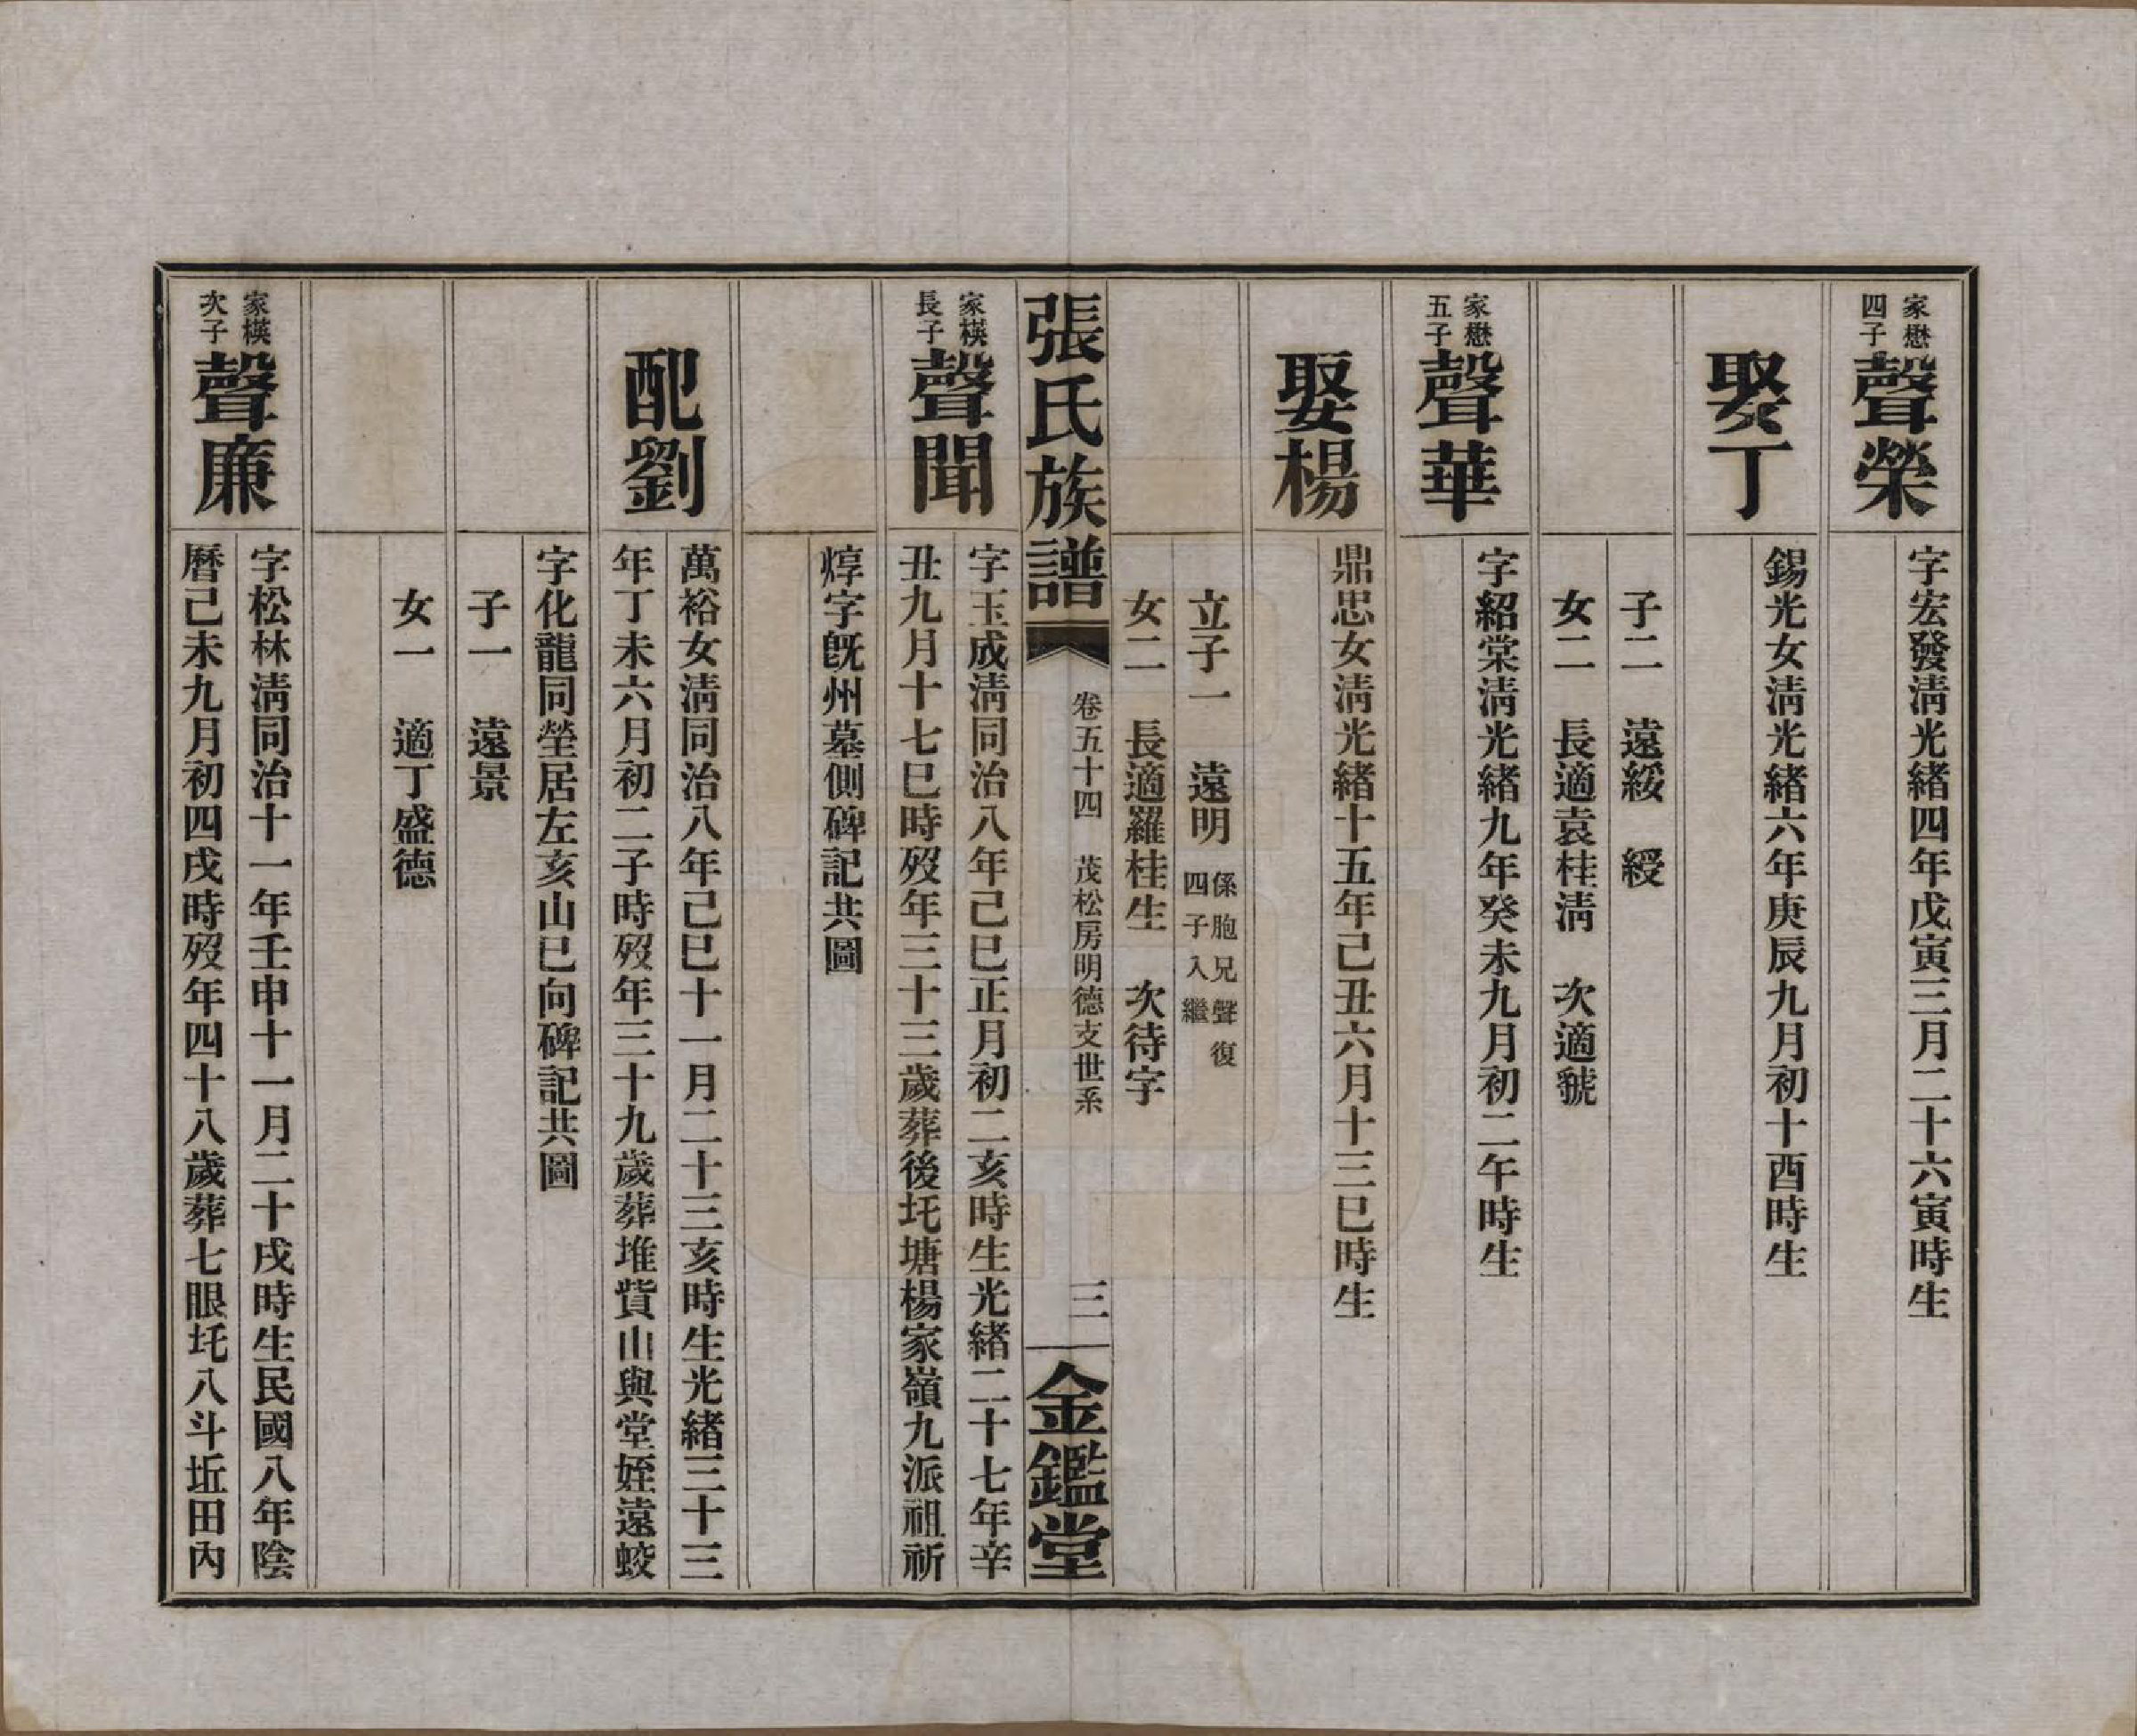 家懋
四子
聲榮
字宏發淸光緒四年戊寅三月二十六寅時生
娶丁
錫光女淸光緒六年庚辰九月初十酉時生
子二　遠綏　綬
女二　長適袁桂淸　次適虢
家懋
五子
聲華
字紹棠淸光緒九年癸未九月初二午時生
娶楊
鼎忠女淸光緒十五年己丑六月十三巳時生
立子一　遠明
係胞兄聲復
四子入繼
女二　長適羅桂生　次待字
張氏族譜
卷五十四　茂松房明德支世系
三
金鑑堂
家楧
長子
聲聞
字玉成淸同治八年己巳正月初二亥時生光緒二十七年辛
丑九月十七巳時歿年三十三歲葬後圫塘楊家嶺九派祖祈
焞字旣州墓側碑記共圖
配劉
萬裕女淸同治八年己巳十一月二十三亥時生光緒三十三
年丁未六月初二子時歿年三十九歲葬堆貲山與堂姪遠蛟
字化龍同塋居左亥山巳向碑記共圖
子一　遠景
女一　適丁盛德
家楧
次子
聲廉
字松林淸同治十一年壬申十一月二十戌時生民國八年陰
曆己未九月初四戌時歿年四十八歲葬七眼圫八斗坵田內